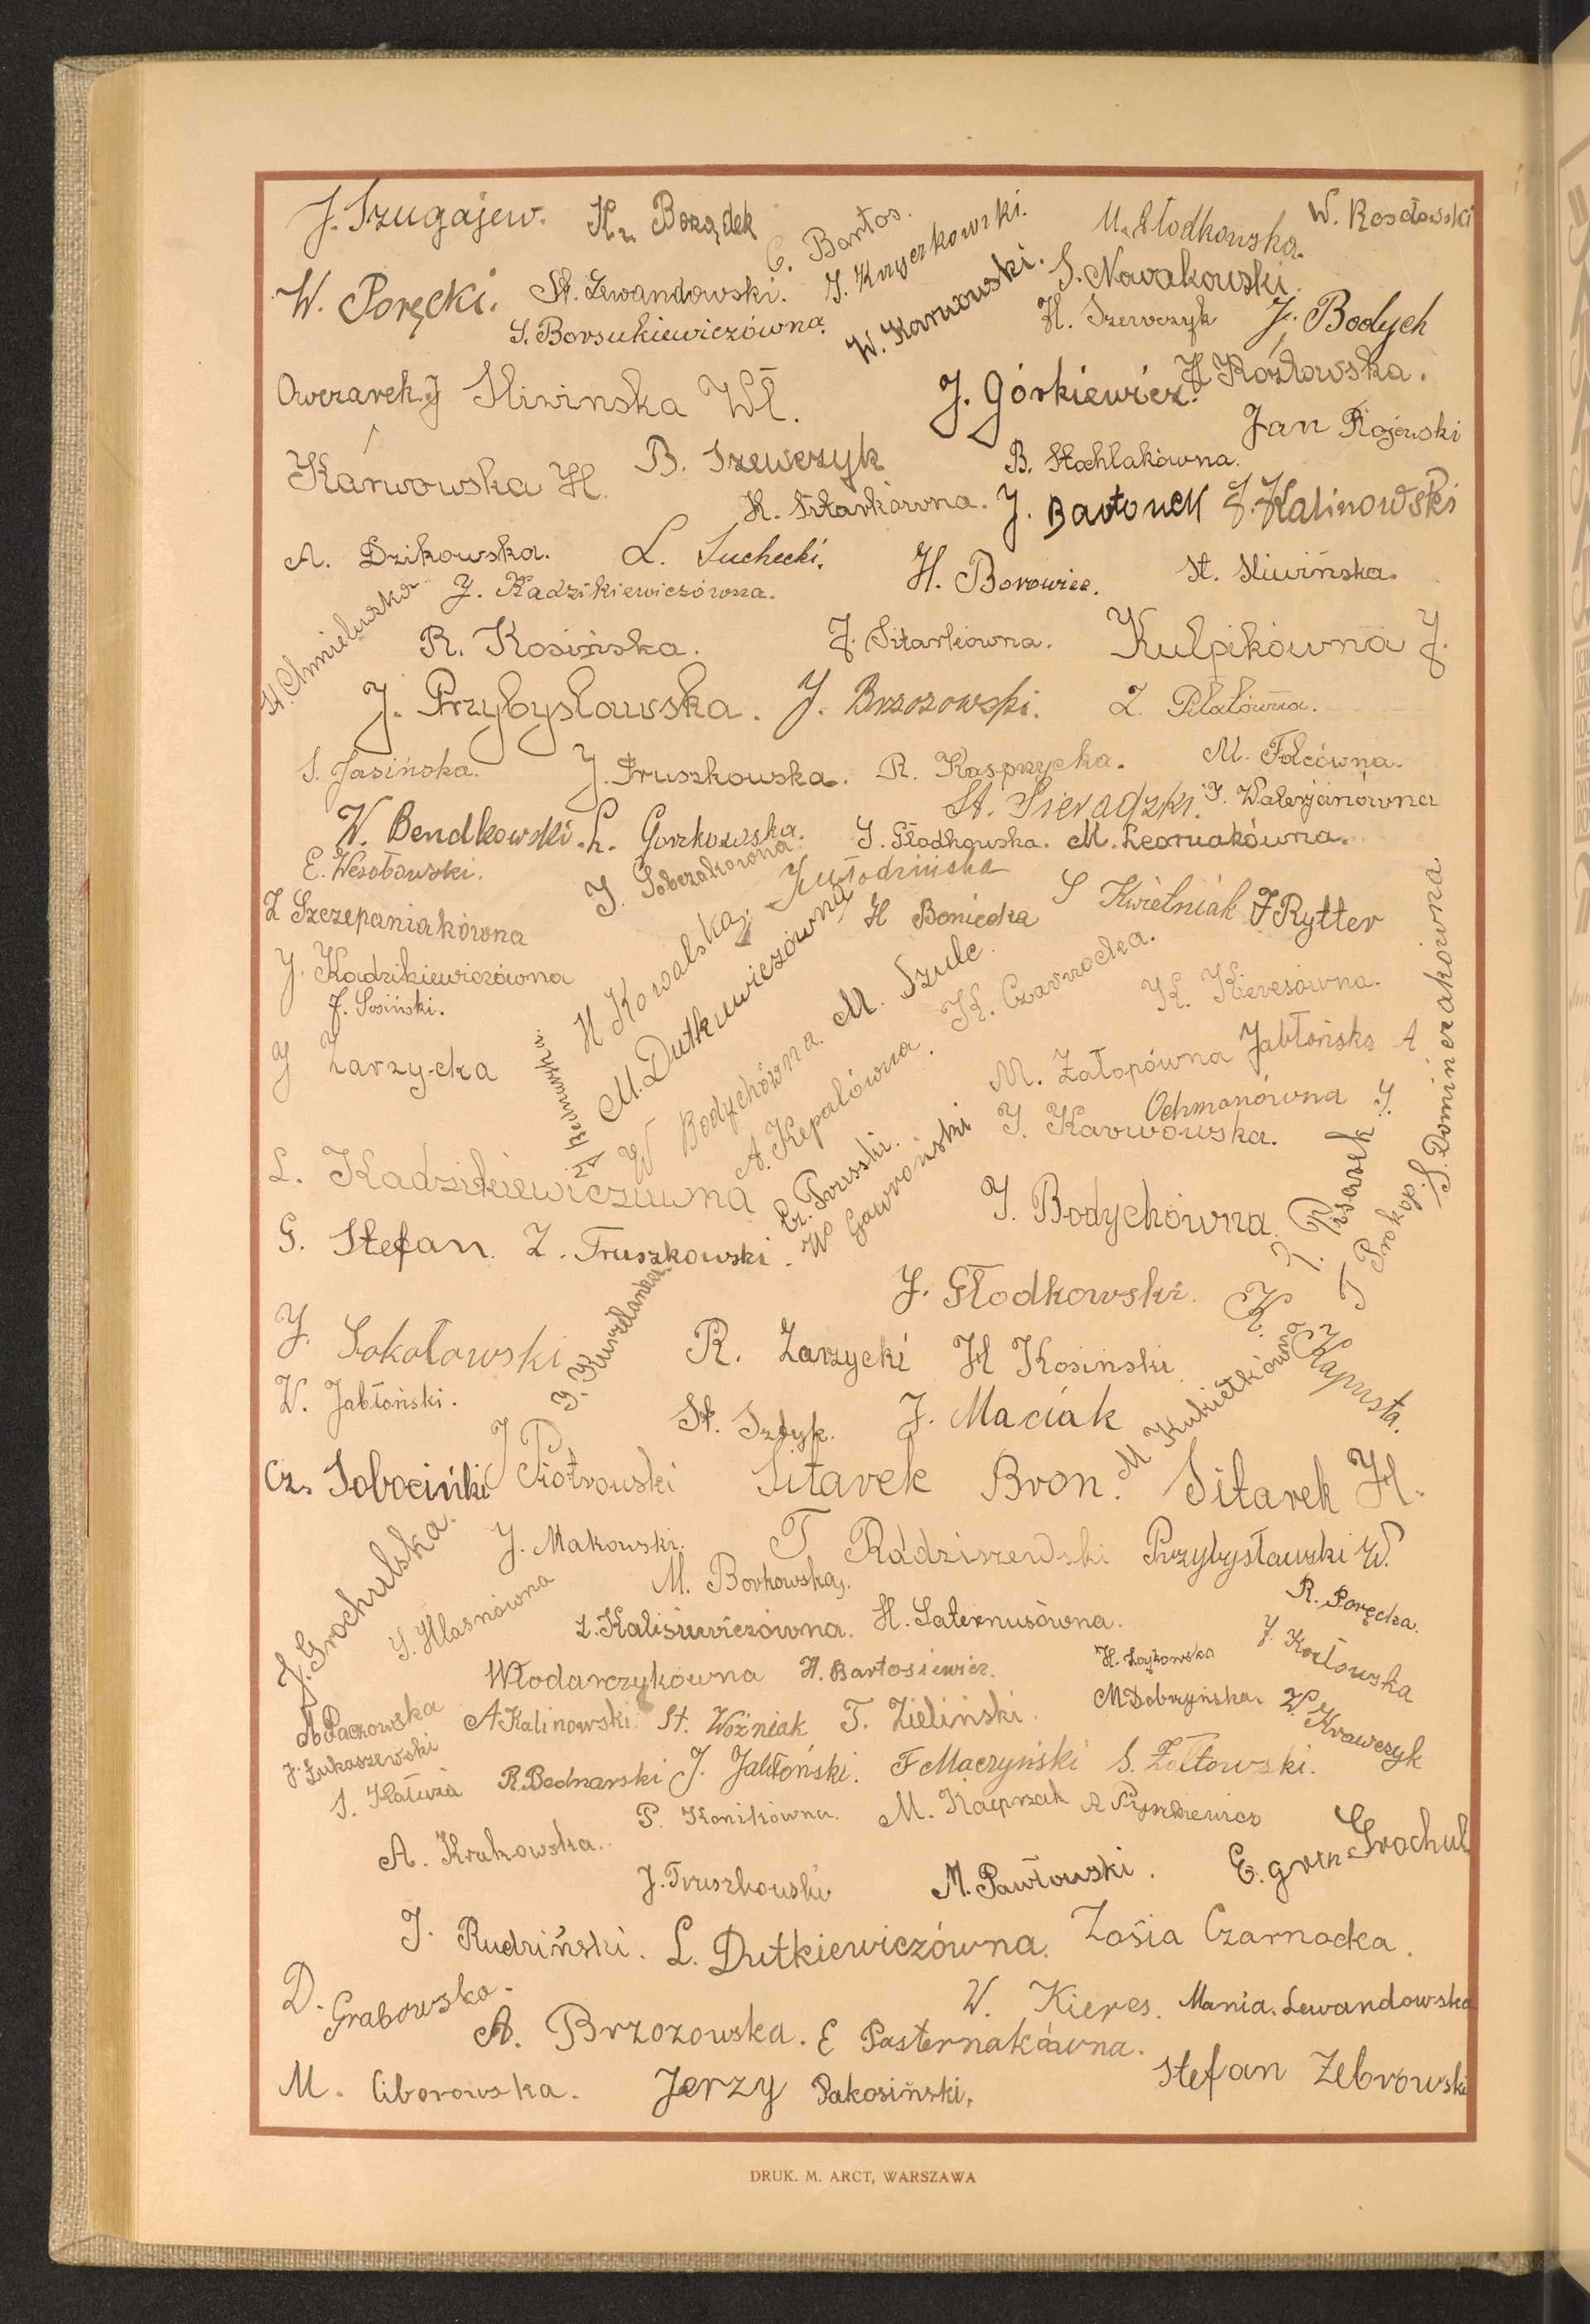 J. Szugajew.
K. Borządek
C. Bartos.
J. Krzyczkowski.
M. Głodkowska.
W. Rosołowski
W. Poręcki.
St. Lewandowski.
W. Karwowski.
S. Nowakowski.
S. Borsukiewiczówna.
H. Szewczyk
J. Bodych
Owczarek J
Sliwinska Wł.
J. Górkiewicz.
H Kozłowska.
Jan Rojewski
Karwowska H.
B. Szewczyk
B. Stochlakówna.
K. Sitarkówna.
J. Bartonek
J. Kalinowski
A. Dzikowska.
L. Suchecki.
H. Borowiec.
St. Sliwińska.
H. Chmielewska
J. Kadzikiewiczówna.
R. Kosińska.
J. Sitarkówna.
Kulpikówna J.
J. Przybysławska.
J. Brzozowski.
Z. Piłatówna.
S. Jasińska.
J. Truszkowska.
R. Kasprzycka.
M. Folcówna.
St. Sieradzki.
J. Walerjanówna
W. Bendkowski.
L. Gorzkowska.
J. Głodkowska.
M. Leoniakówna.
E. Wesołowski.
J. Sobczakówna
Z Szczepaniakówna
H Boniecka
S Kwietniak
F Rytter
J. Kadzikiewiczówna
H Kowalska
M. Dutkiewiczówna
M. Szulc
K. Czarnocka.
J. Sosiński.
K. Kieresówna.
J Zarzycka
W Bodychówna.
A. Kepalówna.
M. Załogówna
Jabłońska A
S. Dominczakówna
Ochmanówna J.
J. Karwowska.
L. Kadzikiewiczówna
Cz. Pruski.
W Gawroński
J. Pisarek
T Prokop.
J. Bodychówna
G. Stefan.
Z. Truszkowski.
J. Głodkowski.
K. Kapusta.
J. Sokołowski
R. Zarzycki
H Kosiński
M Kukiełkówna
W. Jabłoński.
St. Szdyk.
J. Maciak
Cz. Sobociński
J Piotrowski
Sitarek Bron.
Sitarek H.
J. Grochulska.
J. Makowski.
T Radziszewski
Przybysławski W.
M. Borkowska.
R. Poręcka.
S. Hlasnówna
Z. Kalisiewiczówna.
H. Saternusówna.
J. Kozłowska
Włodarczykówna
H. Bartosiewicz.
H. Zajkowska
A Paczowska
A Kalinowski.
St. Woźniak
T. Zieliński.
M Dobrzyńska.
W. Krawczyk
J. Łukaszewski
S. Kałuża
R. Bednarski
J. Jabłoński.
F Maczyński
S. Żółtowski.
P. Konikówna.
M. Kacprzak
A Pyszkiewicz
A. Krakowska.
J. Truszkowski
M. Pawłowski.
Grochul
J. Rudziński.
L. Dutkiewiczówna.
Zosia Czarnocka.
D. Grabowska.
W. Kieres.
Mania. Lewandowska
A. Brzozowska.
E Pasternakówna.
M. Ciborowska.
Jerzy Pakosiński.
Stefan Zebrowski
DRUK. M. ARCT, WARSZAWA